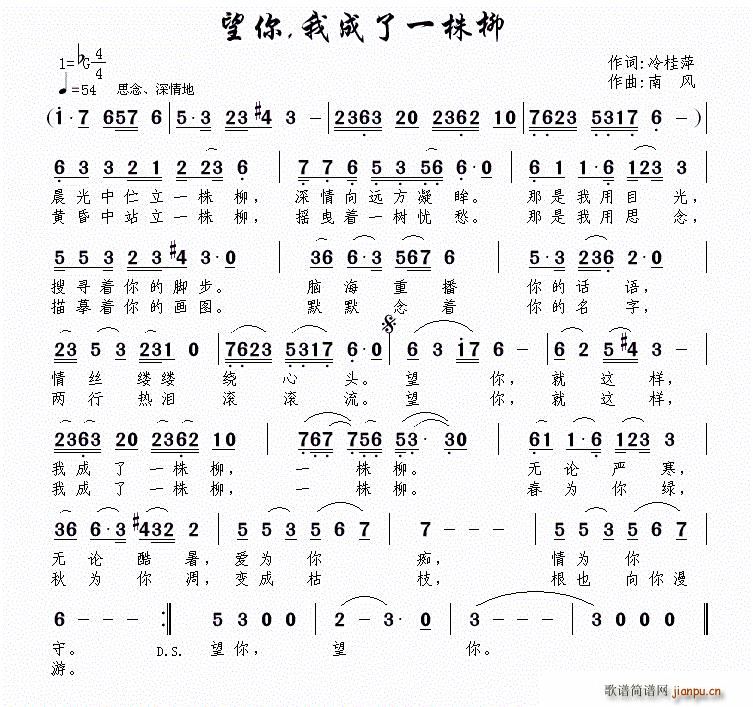 望你,我成了一株柳
1=bG 4/4
作词:冷桂萍
♩=54 思念、深情地
作曲:南 风
(i·7 657 6 | 5·3 23 #4 3 - | 2363 20 2362 10 | 7623 5317 6 - ) |
6 3 3 2 1 2 23 6 | 7 7 6 5 3 56 6·0 | 6 1 1·6 123 3 |
晨光中伫立一株柳, 深情向远方凝眸。 那是我用目光,
黄昏中站立一株柳, 摇曳着一树忧愁。 那是我用思念,
5 5 3 2 3 #4 3·0 | 36 6·3 567 6 | 5·3 236 2·0 |
搜寻着你的脚步。 脑海重播 你的话语,
描摹着你的画图。 默默念着 你的名字,
23 5 3 231 0 | 7623 5317 6·0 | 6 3 i7 6 - | 6 2 5 #4 3 - |
情丝缕缕 绕心头。望你, 就这样,
两行热泪 滚滚流。望你, 就这样,
2363 20 2362 10 | 767 756 53· 30 | 61 1·6 123 3 |
我成了一株柳, 一株柳。 无论严寒,
我成了一株柳, 一株柳。 春为你绿,
36 6·3 #432 2 | 5 5 3 5 6 7 | 7 - - - | 5 5 3 5 6 7 |
无论酷暑,爱为你痴, 情为你
秋为你凋,变成枯枝, 根也向你漫
6 - - - :| 5 3 0 0 | 2 - 3· 0 | 3 - - - | 3 0 0 0 |
守。 D.S. 望你, 望你。
游。
歌谱简谱网
jianpu.cn